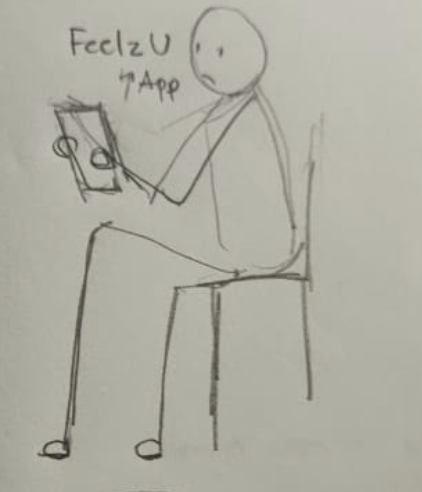 FeelzU
↑App